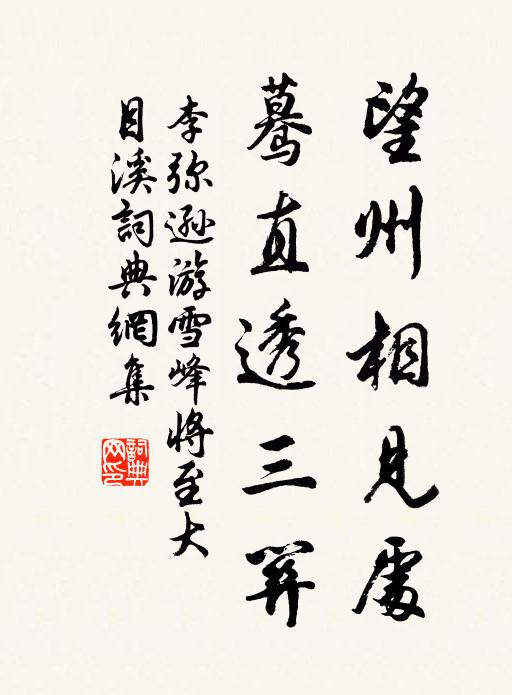 望州相見處
驀直透三關
李弥遜游雪峰将至大
目溪詞典網集
詞典网印